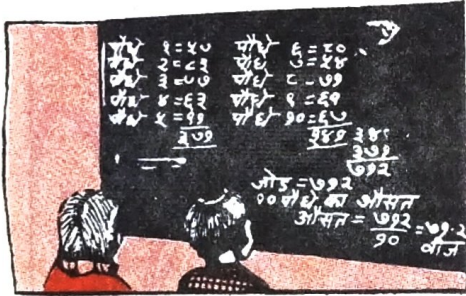 पौधे १=५० पौधे ६=८०
पौधे २=८३ पौधे ७=५४
पौधे ३=७७ पौधे ८=७९
पौधे ४=६२ पौधे ९=६१
पौधे ५=९९ पौधे १०=६७
३७१ ३४१ ३४१
३७१
७१२
जोड़ =७१२
१० पौधों का औसत
औसत = ७१२/१० =७१.२
बीज